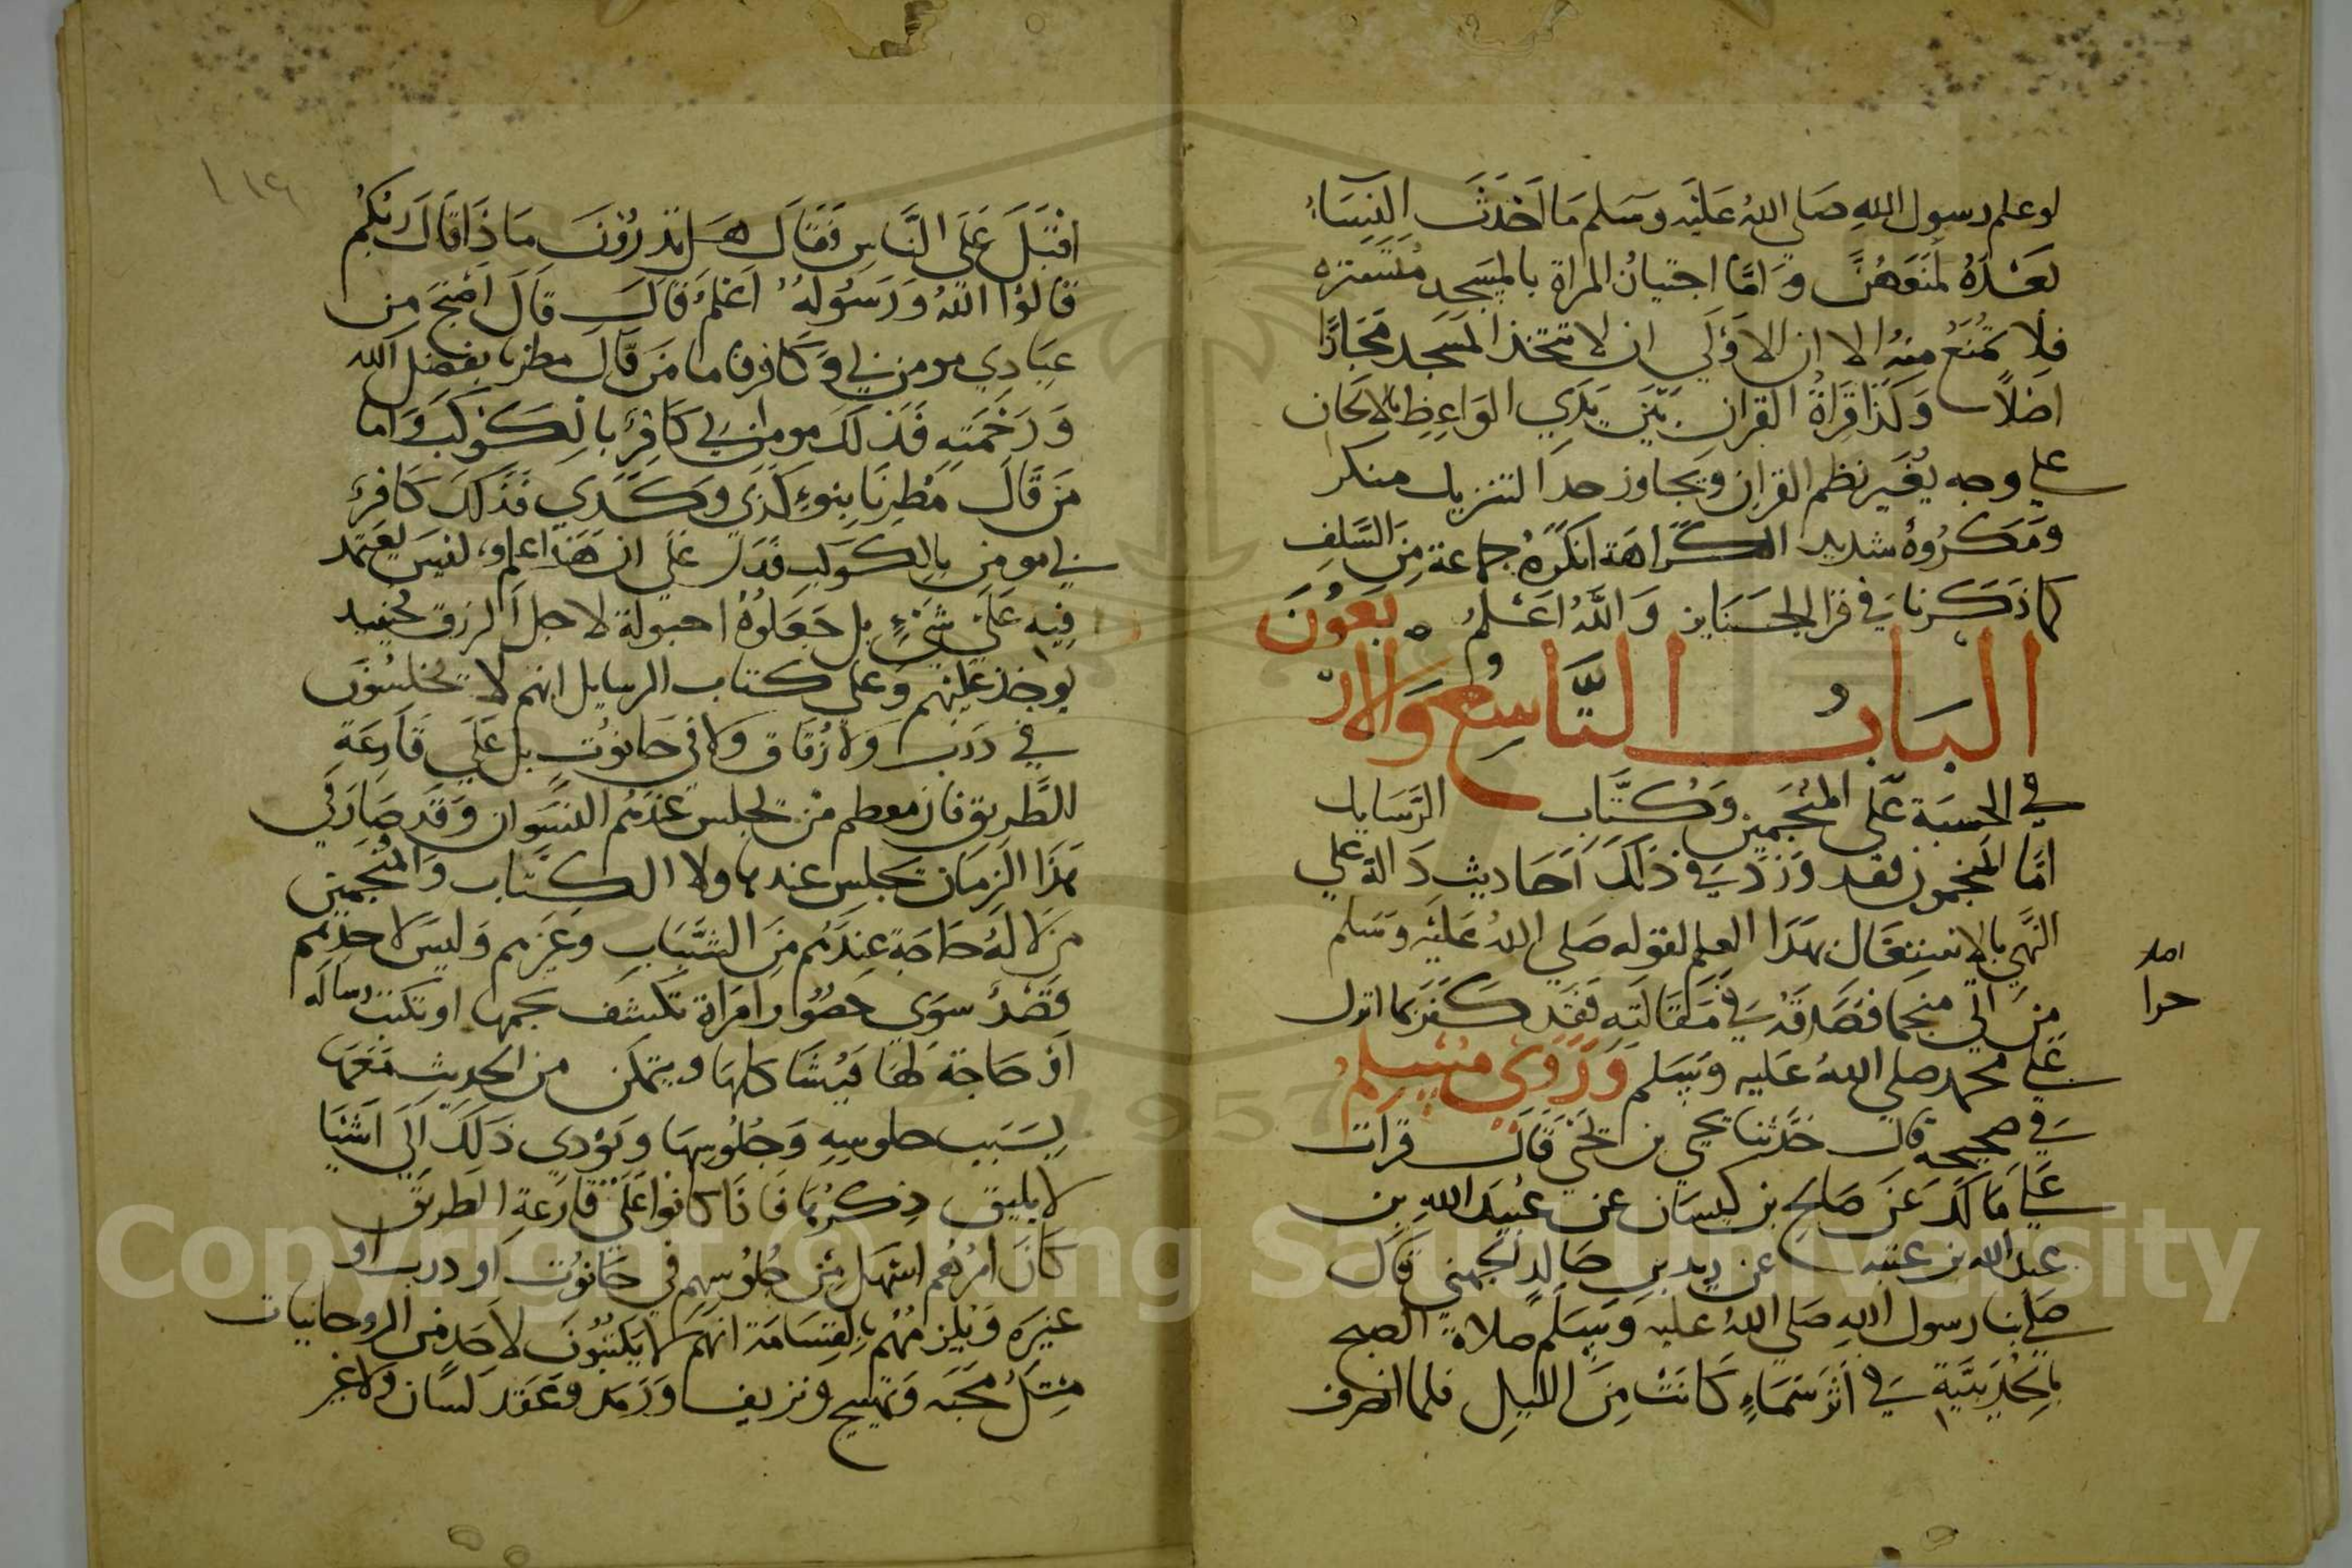 لو علم رسول الله صلي الله عليه وسلم ما احدثت النساء
بعده لمنعهن واما اجتيان المراة بالمسجد مستترة
فلا تمنع منه الا ان الاولي ان لا تتخذ المسجد مجازا
اصلا وكذا قراة القران بين يدي الواعظ بالالحان
علي وجه يغير نظم القران ويجاوز حد التنزيل منكر
ومكروه شديد الكراهة انكره جماعة من السلف
كما ذكرنا في قرا الجنايز والله اعلم
الباب التاسع والاربعون
في الحسبة على المنجمين وكتاب الرسايل
اما المنجمون فقد ورد في ذلك احاديث دالة علي
النهي بالاشتغال بهذا العلم لقوله صلي الله عليه وسلم
من اتي منجما فصدقه في مقالته فقد كفر بما انزل
علي محمد صلي الله عليه وسلم وروي مسلم
في صحيحه قال حدثنا يحيي بن يحيي قال قرات
علي مالك عن صالح بن كيسان عن عبيد الله بن
عبد الله بن عتبه عن زيد بن خالد الجهني قال
صلي بنا رسول الله صلي الله عليه وسلم صلاة الصبح
بالحديبية في اثر سماء كانت من الليل فلما انصرف
١٢٩
اقبل على الناس فقال هل تدرون ماذا قال ربكم
قالوا الله ورسوله اعلم قال قال اصبح من
عبادي مومن بي وكافر فاما من قال مطرنا بفضل الله
ورحمته فذلك مومن بي كافر بالكوكب واما
من قال مطرنا بنوء كذي وكذي فذلك كافر
بي مومن بالكوكب فدل علي ان هذا علم ليس يعتمد
فيه علي شيء بل جعلوه احبولة لاجل الرزق حينيد
يوخذ عليهم وعلي كتاب الرسايل انهم لا يجلسون
في درب ولا زقاق ولا في حانوت بل علي قارعة
الطريق فان معظم من يجلس عندهم النسوان وقد صار في
هذا الزمان يجلس عند هاولا الكتاب والمنجمين
من لا له حاجة عندهم من الشباب وغيرهم وليس لاحدهم
قصد سوي حضور امراة تكشف نجمها او تكتب رسالة
او حاجة لها فيشاكلها ويتمكن من الحديث معها
بسبب جلوسه وجلوسها ويؤدي ذلك الي اشيا
لا يليق ذكرها فاذا كانوا علي قارعة الطريق
كان امرهم اسهل من جلوسهم في حانوت او درب او
غيره ويلزمهم بالقسامة انهم لا يكتبون لاحد من الروحانيات
مثل محبه وتهييج ونزيف ورمد وعقد لسان ولا غير
Copyright © King Saud University
1957